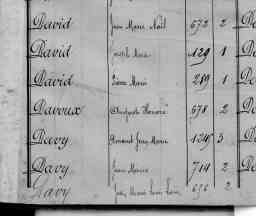 David Jean Marie Noël 672 2 D
David Joseph Marie 129 1 D
David Pierre Marie 289 1 D
Davoux Honoré 678 2 D
Davy Armand Jean Marie 1249 3 D
Davy Jean Marie 714 2 De
Davy Jean Marie Louis 656 2